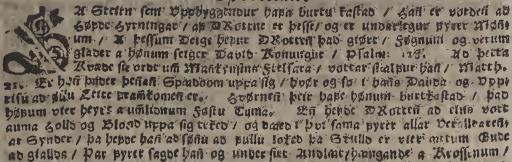 SA Steirn sem Uppbyggendur hafa burtu kastad / Hafi er vorden ad
Høfde Hyrningar / af DRottne er þesse / og er undarlegur fyrer Mønn-
um / A þessum Deige hefur DRotten þad giørt / Føgnum og verum
glader a hønum seiger David Konungur / Psalm: 118. Ad þetta
Kvæde se ordt um Mannkynsins Frelsara / vottar sialfur hañ / Matth.
21. Er hañ þañ Spaadoom uppa sig / og Uppr
risu ad øllu Leite framkomen er. / Hvørnen þeir hafe hønum burtkastad / þad
hønum vier heyrt a umlidnum Føstu Tyma. En hefur DRotten ad eins vort
auma Holld og Blood uppa sig teked / og daed i þvi sama fyrer allar Veralldaren-
ar Synder / þa hefde hañ ad søñu ad fullu loked þa Skulld er vier attum Gude
ad gialda / Þar fyrer sagde hañ og under sitt Andlaat / hangande a Krossinum /